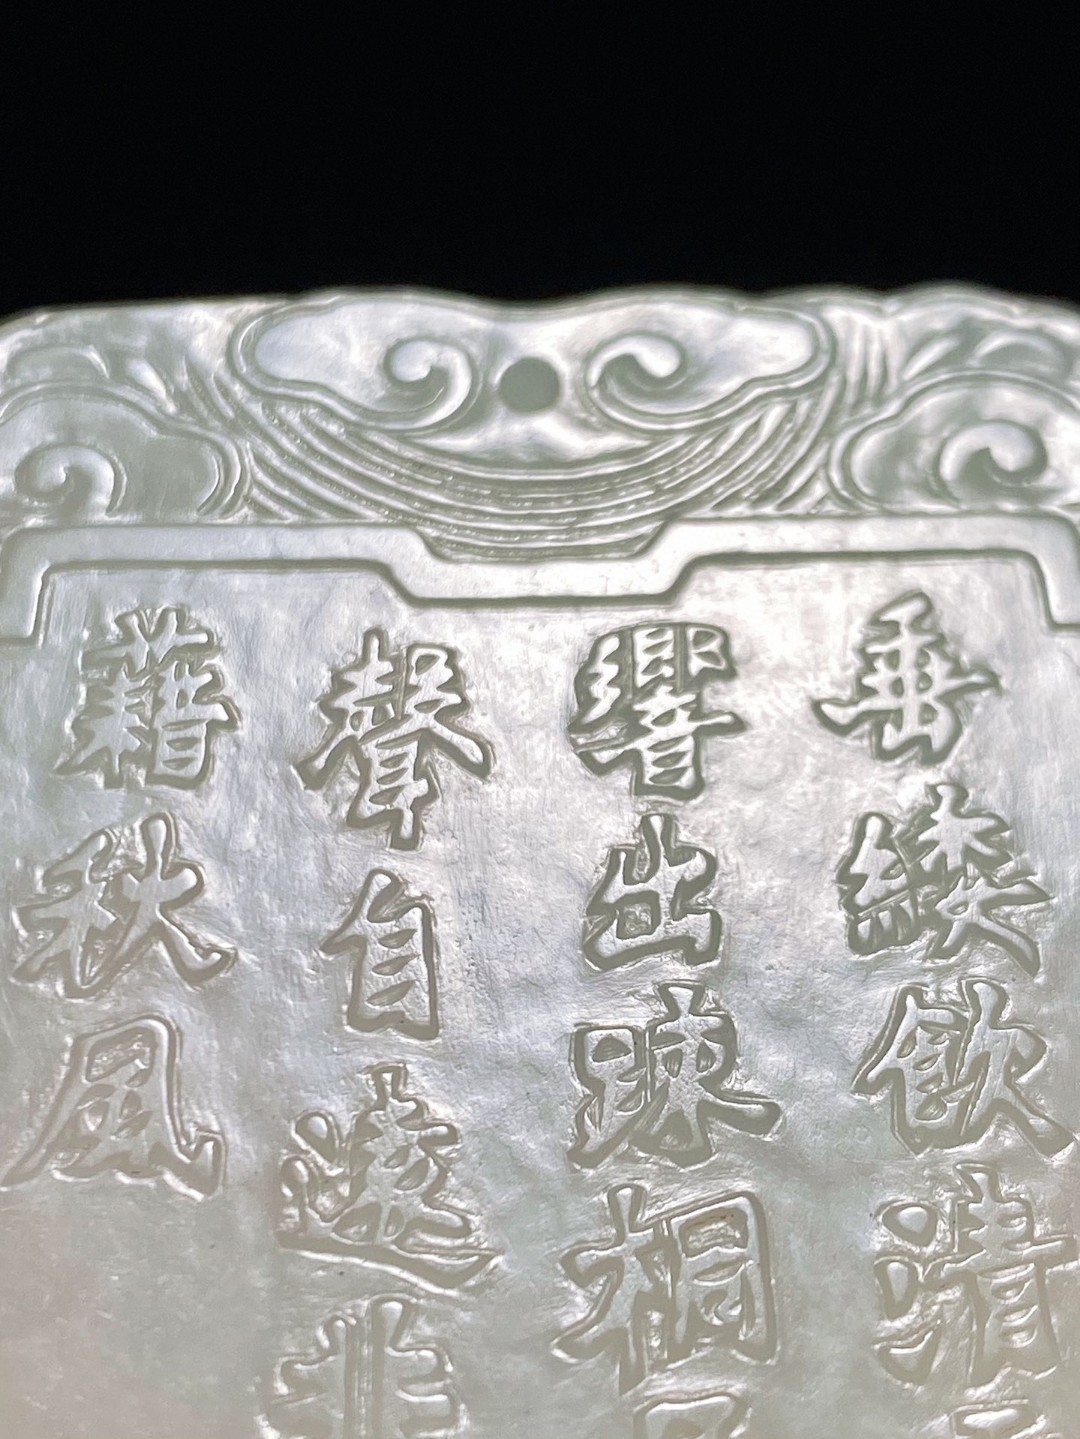 垂緌飲清
響出踈桐
聲自遠非
藉秋風